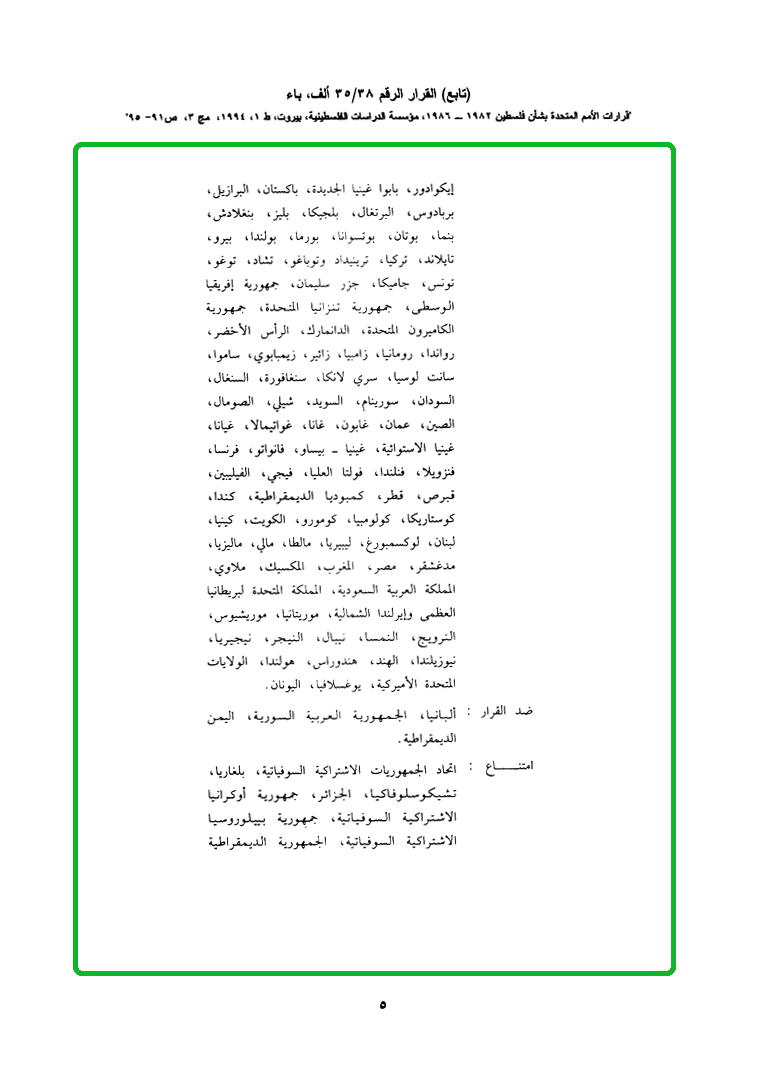 (تابع) القرار الرقم ٣٥/٣٨ ألف، باء
"قرارات الأمم المتحدة بشأن فلسطين ١٩٨٢ ــ ١٩٨٦، مؤسسة الدراسات الفلسطينية، بيروت، ط ١، ١٩٩٤، مج ٣، ص٩١- ٩٥"
إيكوادور، بابوا غينيا الجديدة، باكستان، البرازيل،
بربادوس، البرتغال، بلجيكا، بليز، بنغلادش،
بنما، بوتان، بوتسوانا، بورما، بولندا، بيرو،
تايلاند، تركيا، ترينيداد وتوباغو، تشاد، توغو،
تونس، جاميكا، جزر سليمان، جمهورية إفريقيا
الوسطى، جمهورية تنزانيا المتحدة، جمهورية
الكاميرون المتحدة، الدانمارك، الرأس الأخضر،
رواندا، رومانيا، زامبيا، زائير، زيمبابوي، ساموا،
سانت لوسيا، سري لانكا، سنغافورة، السنغال،
السودان، سورينام، السويد، شيلي، الصومال،
الصين، عمان، غابون، غانا، غواتيمالا، غيانا،
غينيا الاستوائية، غينيا ــ بيساو، فانواتو، فرنسا،
فنزويلا، فنلندا، فولتا العليا، فيجي، الفيليبين،
قبرص، قطر، كمبوديا الديمقراطية، كندا،
كوستاريكا، كولومبيا، كومورو، الكويت، كينيا،
لبنان، لوكسمبورغ، ليبيريا، مالطا، مالي، ماليزيا،
مدغشقر، مصر، المغرب، المكسيك، ملاوي،
المملكة العربية السعودية، المملكة المتحدة لبريطانيا
العظمى وإيرلندا الشمالية، موريتانيا، موريشيوس،
النرويج، النمسا، نيبال، النيجر، نيجيريا،
نيوزيلندا، الهند، هندوراس، هولندا، الولايات
المتحدة الأميركية، يوغسلافيا، اليونان.
ضد القرار : ألبانيا، الجمهورية العربية السورية، اليمن
الديمقراطية.
امتنـــــاع : اتحاد الجمهوريات الاشتراكية السوفياتية، بلغاريا،
تشيكوسلوفاكيا، الجزائر، جمهورية أوكرانيا
الاشتراكية السوفياتية، جمهورية بييلوروسيا
الاشتراكية السوفياتية، الجمهورية الديمقراطية
٥